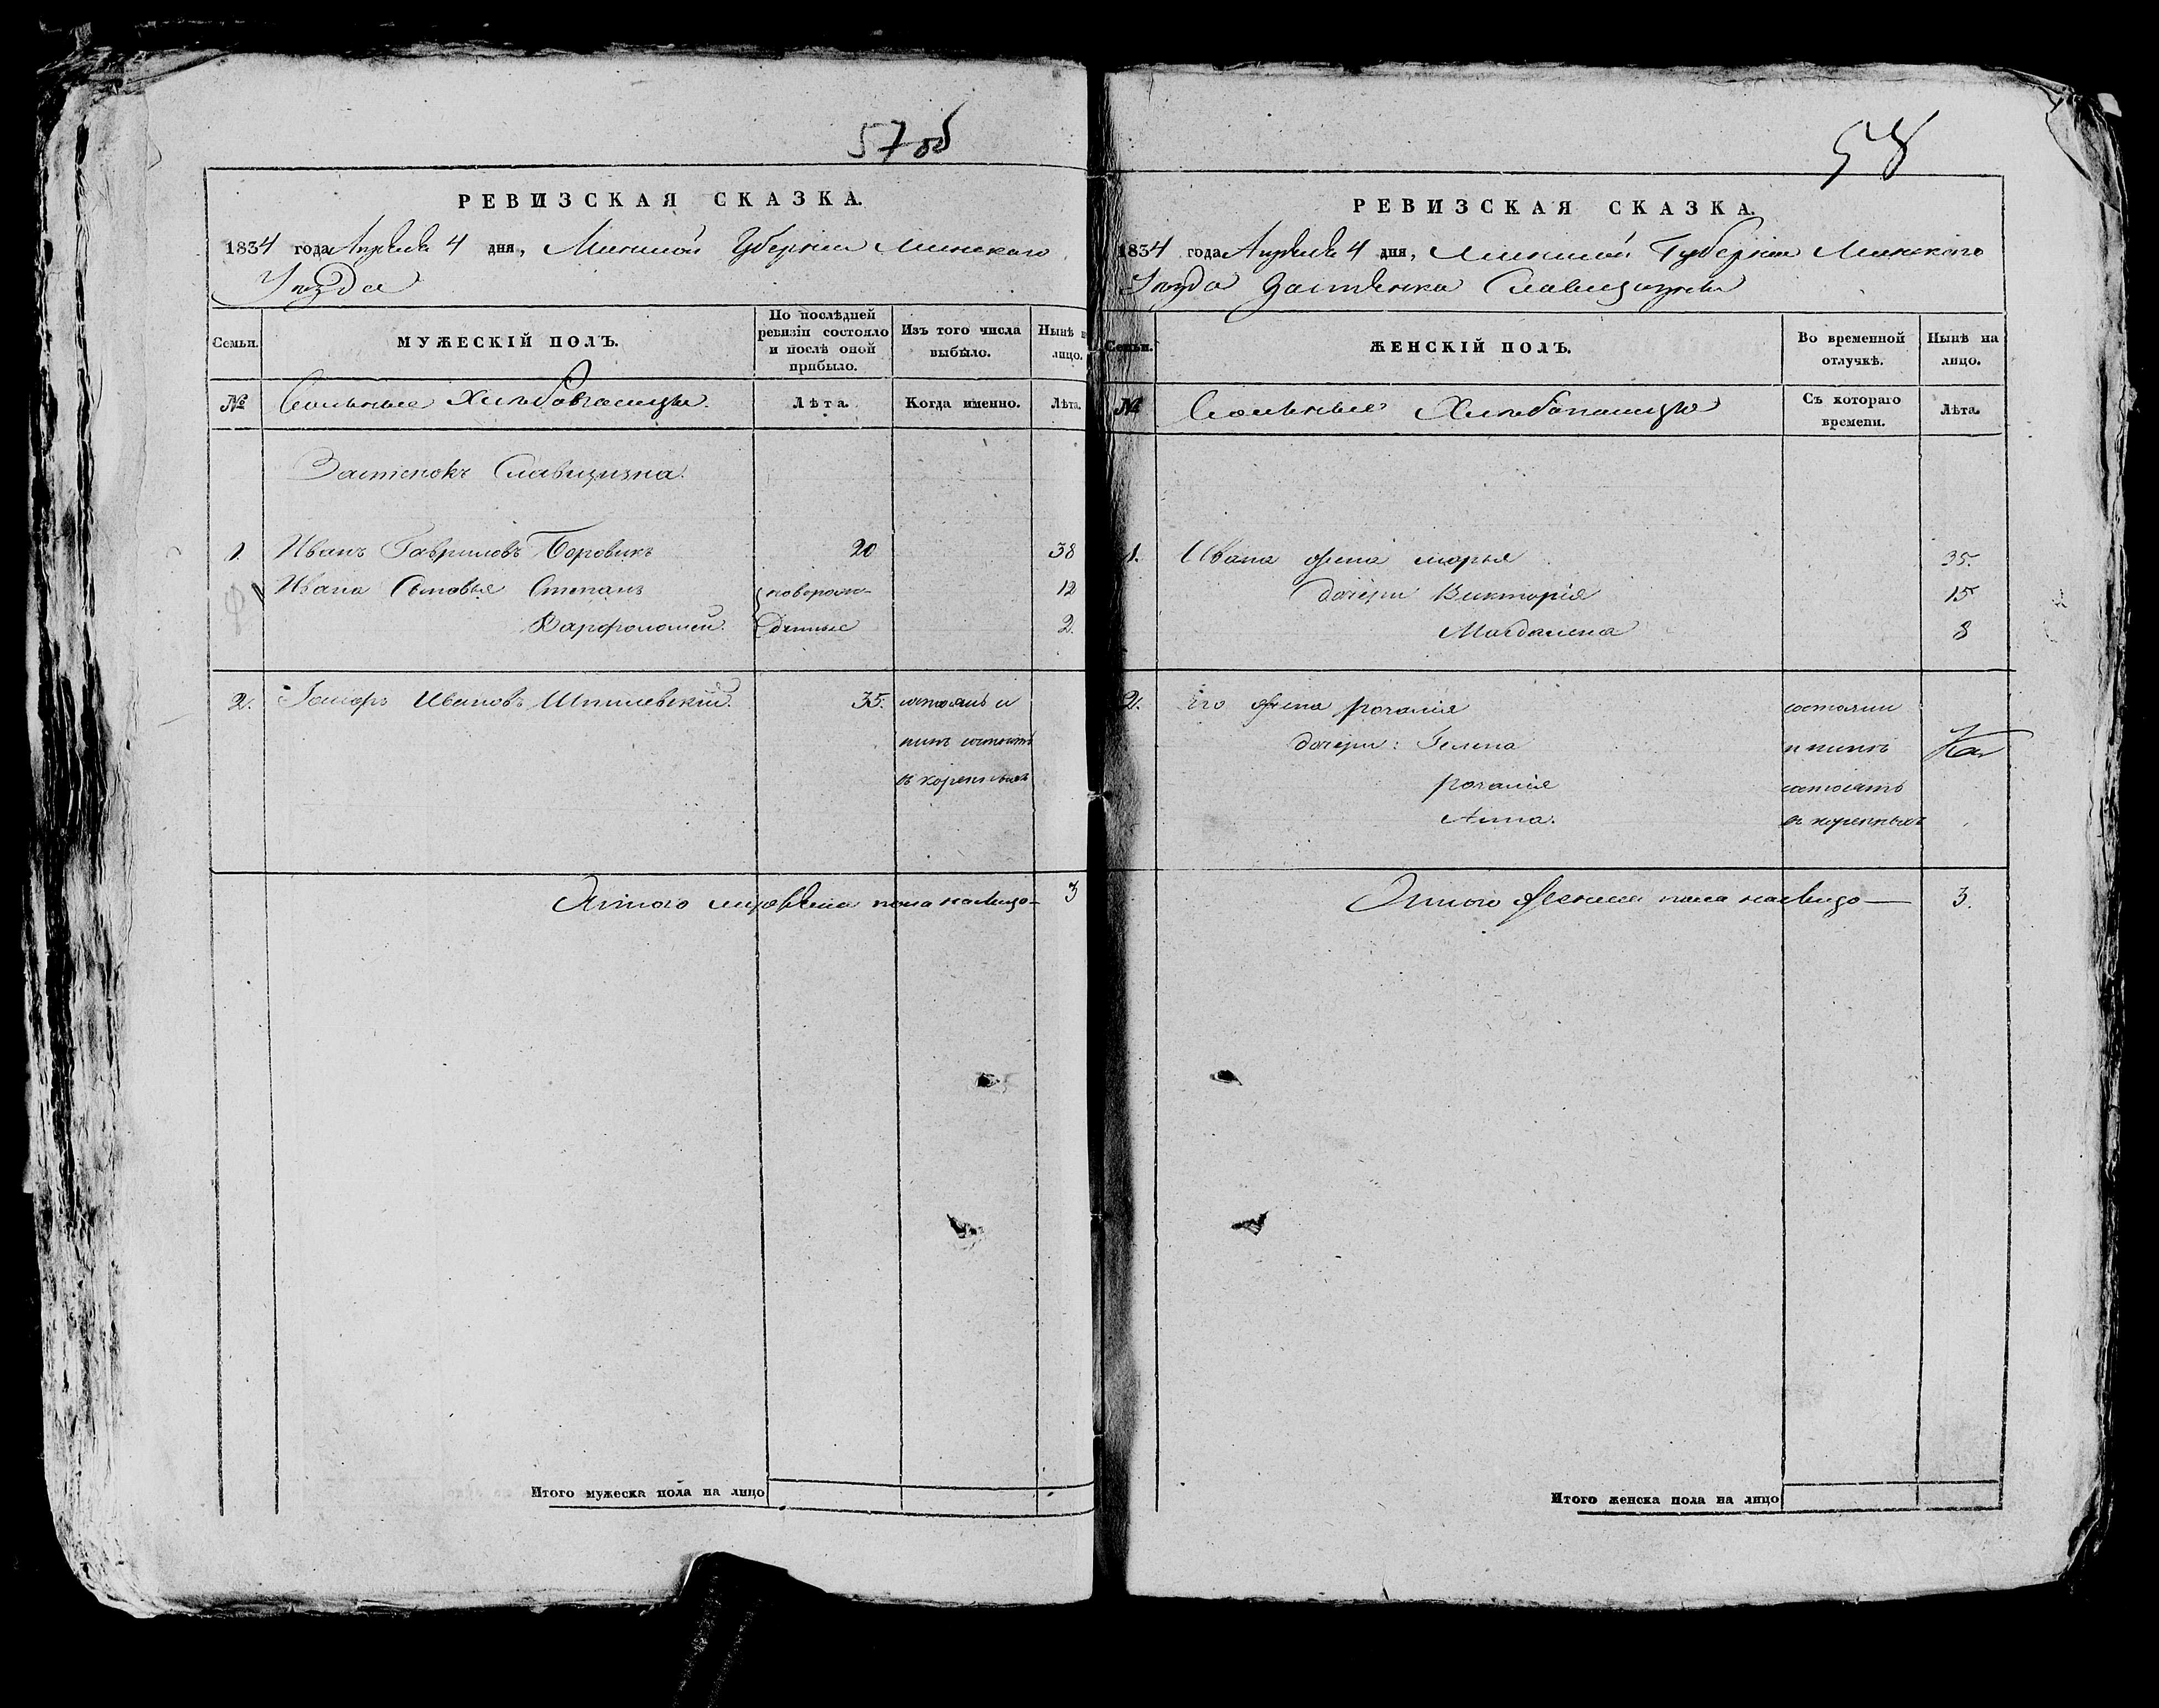 57 об
РЕВИЗСКАЯ СКАЗКА.
1834 года Апрѣля 4 дня, Минской Губерніи Минскаго
Уѣзда
Семьи.
МУЖЕСКІЙ ПОЛЪ.
По послѣдней ревизіи состояло и послѣ оной прибыло.
Изъ того числа выбыло.
Нынѣ на лицо.
№
Вольные Хлебопашцы.
Лѣта.
Когда именно.
Лѣта.
Застенокъ Славицизна.
1. Иванъ Гавриловъ Боровикъ 20 38
Ивана Сыновья Степанъ новорож- 12
Варфоломей. денные 2.
2. Ивановъ Шпилевский. 35. состоялъ и
нынѣ состоитъ
въ коренныхъ
Итого мужеска пола на лицо 3
Итого мужеска пола на лицо
58
РЕВИЗСКАЯ СКАЗКА.
1834 года Апрѣля 4 дня, Минской Губерніи Минскаго
Уѣзда Застѣнка Славицизны
Семьи.
ЖЕНСКІЙ ПОЛЪ.
Во временной отлучкѣ.
Нынѣ на лицо.
№
Вольные Хлебопашцы
Съ котораго времени.
Лѣта.
1. Ивана жена Марья 35.
дочери Викторія 15
Магдалена 8
2. Его жена Розалія состояли
дочери: Гелена и нынѣ
Розалія состоятъ
Анна. въ коренныхъ
Итого женска пола на лицо — 3.
Итого женска пола на лицо